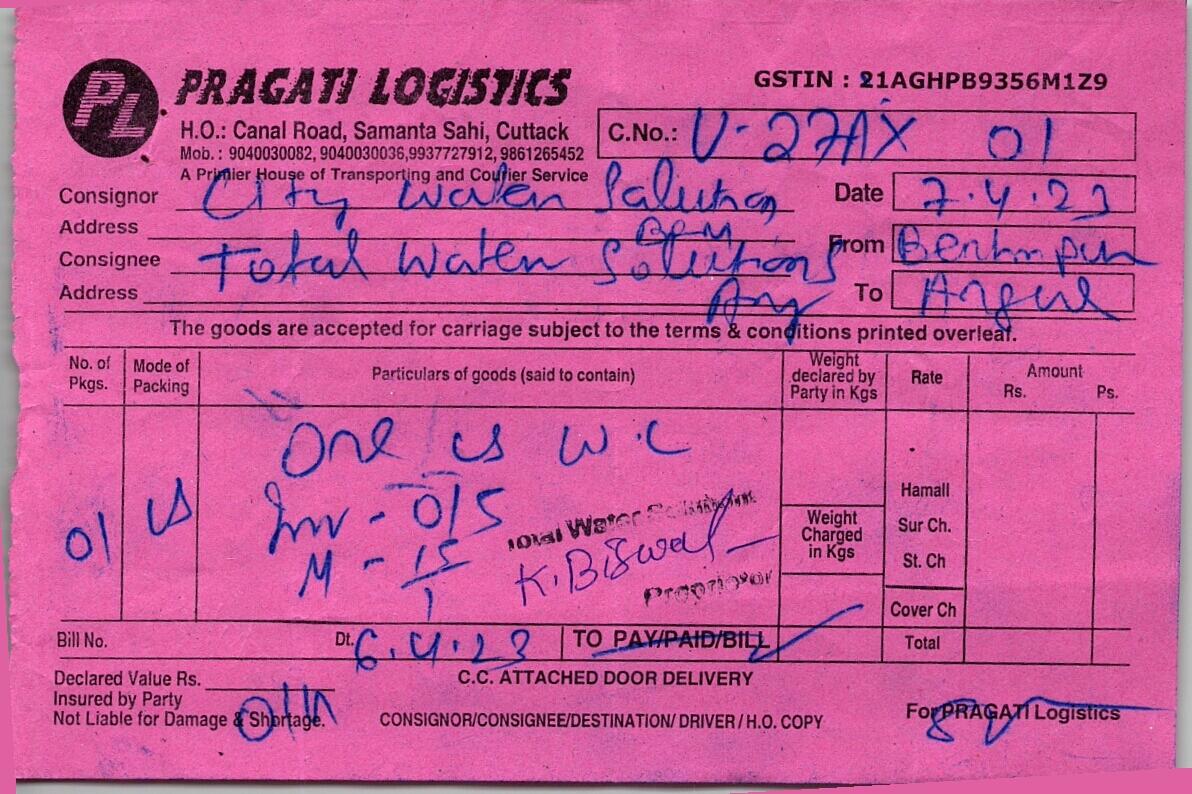 PL PRAGATI LOGISTICS
GSTIN : 21AGHPB9356M1Z9
H.O.: Canal Road, Samanta Sahi, Cuttack
C.No.: V-27AX 01
Mob. : 9040030082, 9040030036,9937727912, 9861265452
A Primier House of Transporting and Courier Service
Consignor City Water Solution
Date 7.4.23
Address BPM
From Berhmpur
Consignee Total Water Solutions
Address Ang
To Angul
The goods are accepted for carriage subject to the terms & conditions printed overleaf.
No. of Pkgs.
Mode of Packing
Particulars of goods (said to contain)
Weight declared by Party in Kgs
Rate
Amount
Rs. Ps.
One W.C
Inv - 015
01
M - 15
1
Total Water Solutions
K. Biswal
Proprietor
Weight Charged in Kgs
Hamali
Sur Ch.
St. Ch
Cover Ch
Bill No. Dt. 6.4.23
TO PAY/PAID/BILL
Total
Declared Value Rs.
C.C. ATTACHED DOOR DELIVERY
Insured by Party
Not Liable for Damage & Shortage.
CONSIGNOR/CONSIGNEE/DESTINATION/ DRIVER / H.O. COPY
For PRAGATI Logistics